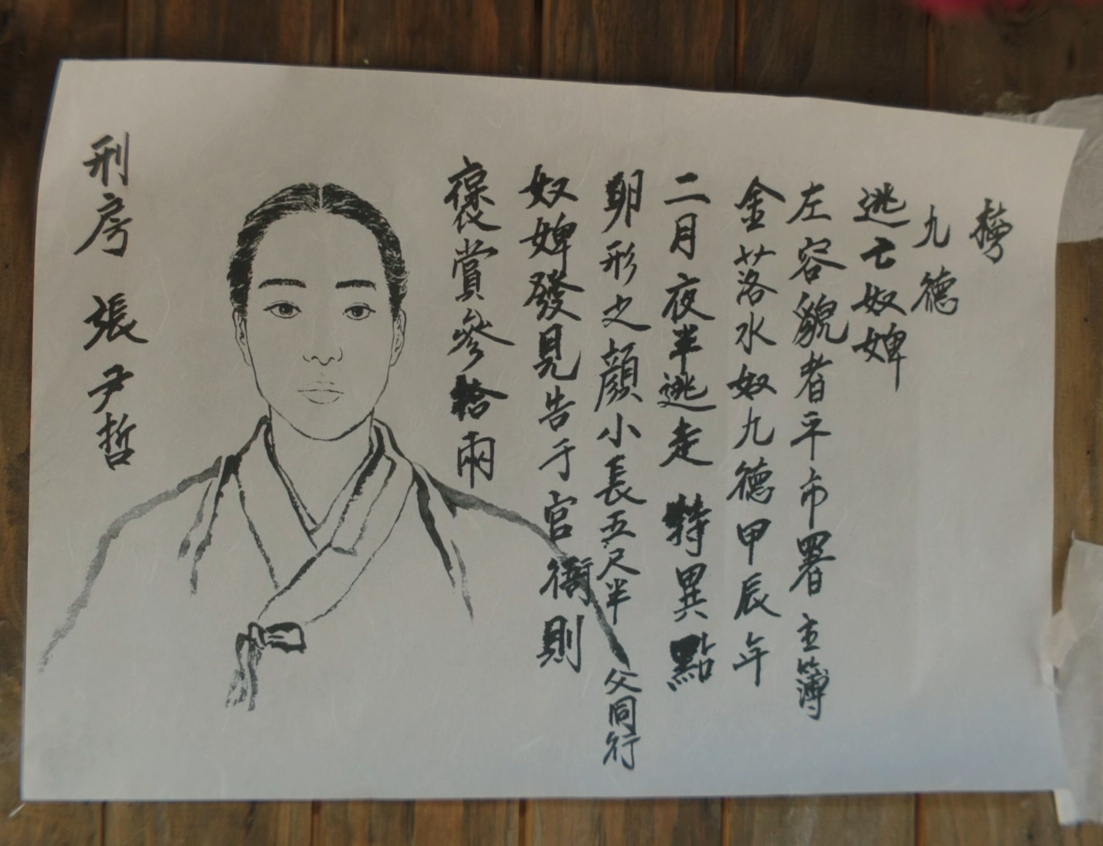 九德
逃亡奴婢
左容貌者平市署主簿
金落水奴九德甲辰年
二月夜半逃走 特異點
卵形之顔小長五尺半 父同行
奴婢發見告于官衙則
褒賞參拾兩
刑房 張尹哲